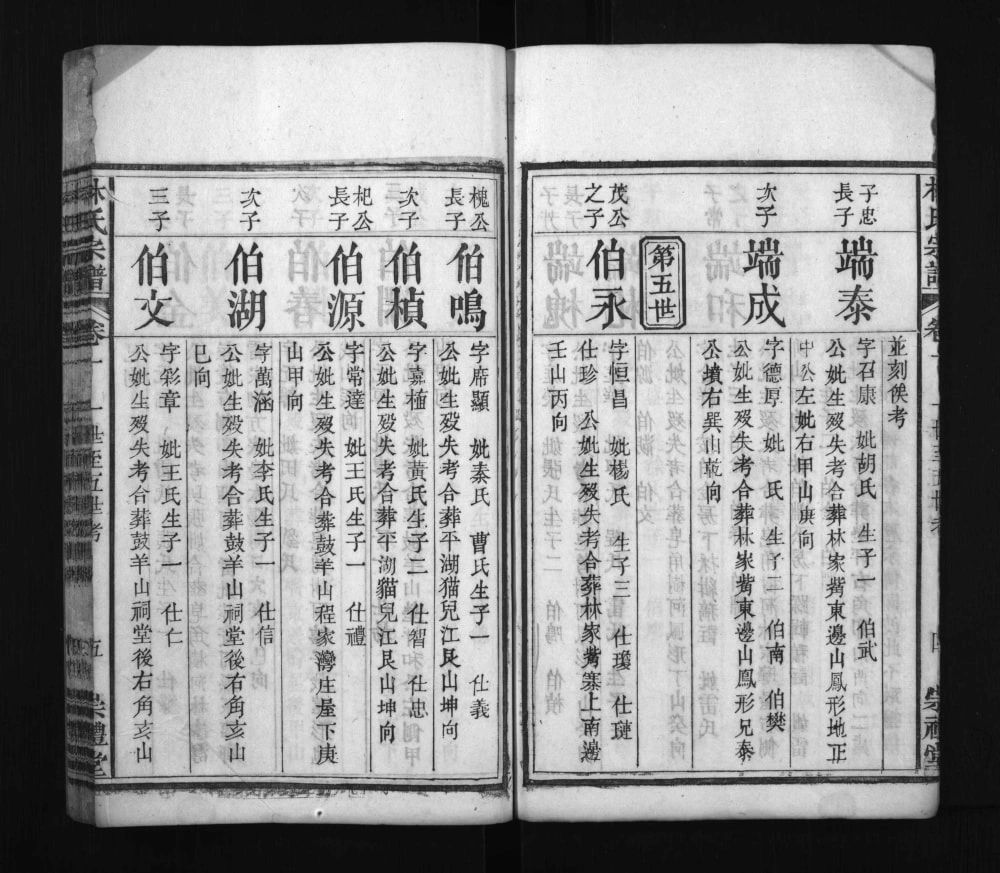 並刻俟考
子忠
長子
端泰
字召康　妣胡氏　生子一　伯武
公妣生歿失考合葬林家觜東邊山鳳形地正
中公左妣右甲山庚向
次子
端成
字德厚　妣　氏　生子二　伯南　伯樊
公妣生歿失考合葬林家觜東邊山鳳形兄泰
公墳右巽山乾向
第五世
茂公
之子
伯永
字恒昌　妣楊氏　生子三　仕瓊　仕璉
仕珍　公妣生歿失考合葬林家觜寨上南邊
壬山丙向
槐公
長子
伯鳴
字席顯　妣秦氏　曹氏生子一　仕義
公妣生歿失考合葬平湖猫兒江艮山坤向
次子
伯楨
字嘉植　妣黃氏生子二　仕智　仕忠
公妣生歿失考合葬平湖貓兒江艮山坤向
杞公
長子
伯源
字常達　妣王氏生子一　仕禮
公妣生歿失考合葬鼓羊山程家灣庄屋下庚
山甲向
次子
伯湖
字萬涵　妣李氏生子一　仕信
公妣生歿失考合葬鼓羊山祠堂後右角亥山
巳向
三子
伯文
字彩章　妣王氏生子一　仕仁
公妣生歿失考合葬鼓羊山祠堂後右角亥山
林氏宗譜　卷一　一世至五世考　五　崇禮堂